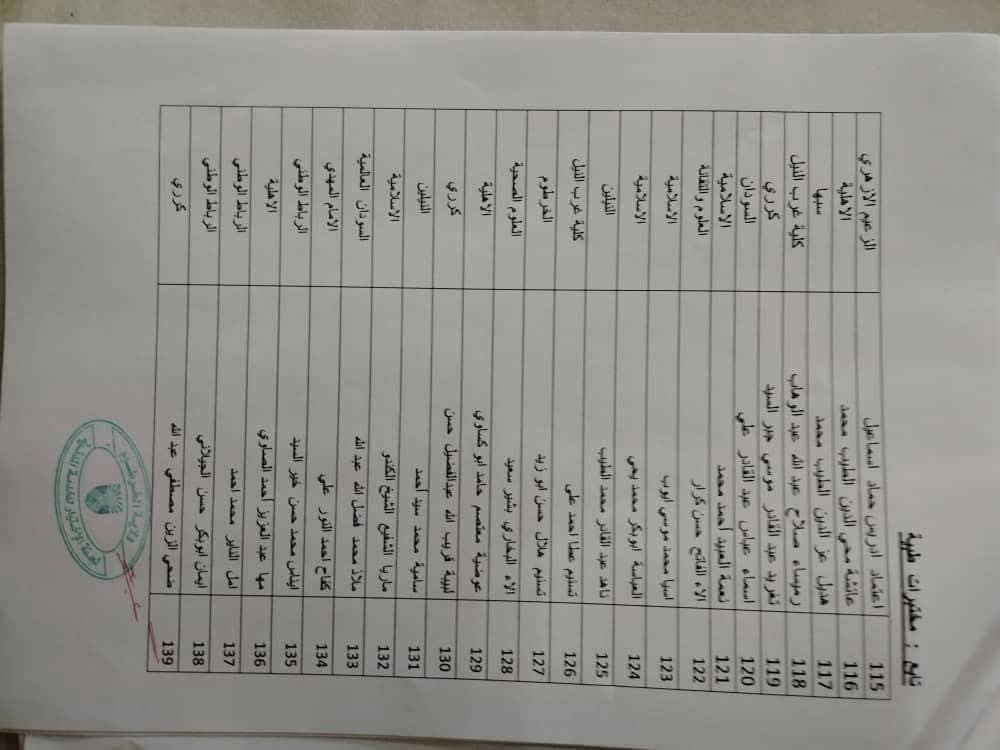 تابع : مختبرات طبية
115 اعتماد ادريس حماد اسماعيل الزعيم الازهري
116 عائشة محي الدين الطيب محمد الاهلية
117 هديل عز الدين الطيب محمد سبها
118 رميساء صلاح عبد الله عبد الوهاب كلية غرب النيل
119 تغريد عبد القادر موسي جبر السيد كرري
120 اسماء عباس عبد القادر علي السودان
121 نعمة العبيد أحمد محمد الاسلامية
122 الاء الفاتح حسن كرار العلوم والتقانة
123 اسيا محمد موسي ايوب الاسلامية
124 العباسة ابوبكر محمد يحي الاسلامية
125 ناهد عبد القادر محمد الطيب النيلين
126 تسنيم عطا احمد علي كلية غرب النيل
127 تسنيم هلال حسن ابو زيد الخرطوم
128 الاء البخاري بشير سعيد العلوم الصحية
129 عوضية معتصم حامد ابو كساوي الاهلية
130 لبيبة قريب الله عبدالفضيل حسن كرري
131 سامية محمد سيد أحمد النيلين
132 ماريا الشفيع الشيخ الكندو الاسلامية
133 ملاذ محمد فضل الله عبد الله السودان العالمية
134 كفاح احمد النور علي الامام المهدي
135 ايناس محمد حسن خير السيد الرباط الوطني
136 مها عبد العزيز أحمد الصاوي الاهلية
137 امل الناير محمد احمد الرباط الوطني
138 ايمان ابوبكر حسن الجيلاني الرباط الوطني
139 ضحي الزين مصطفي عبد الله كرري